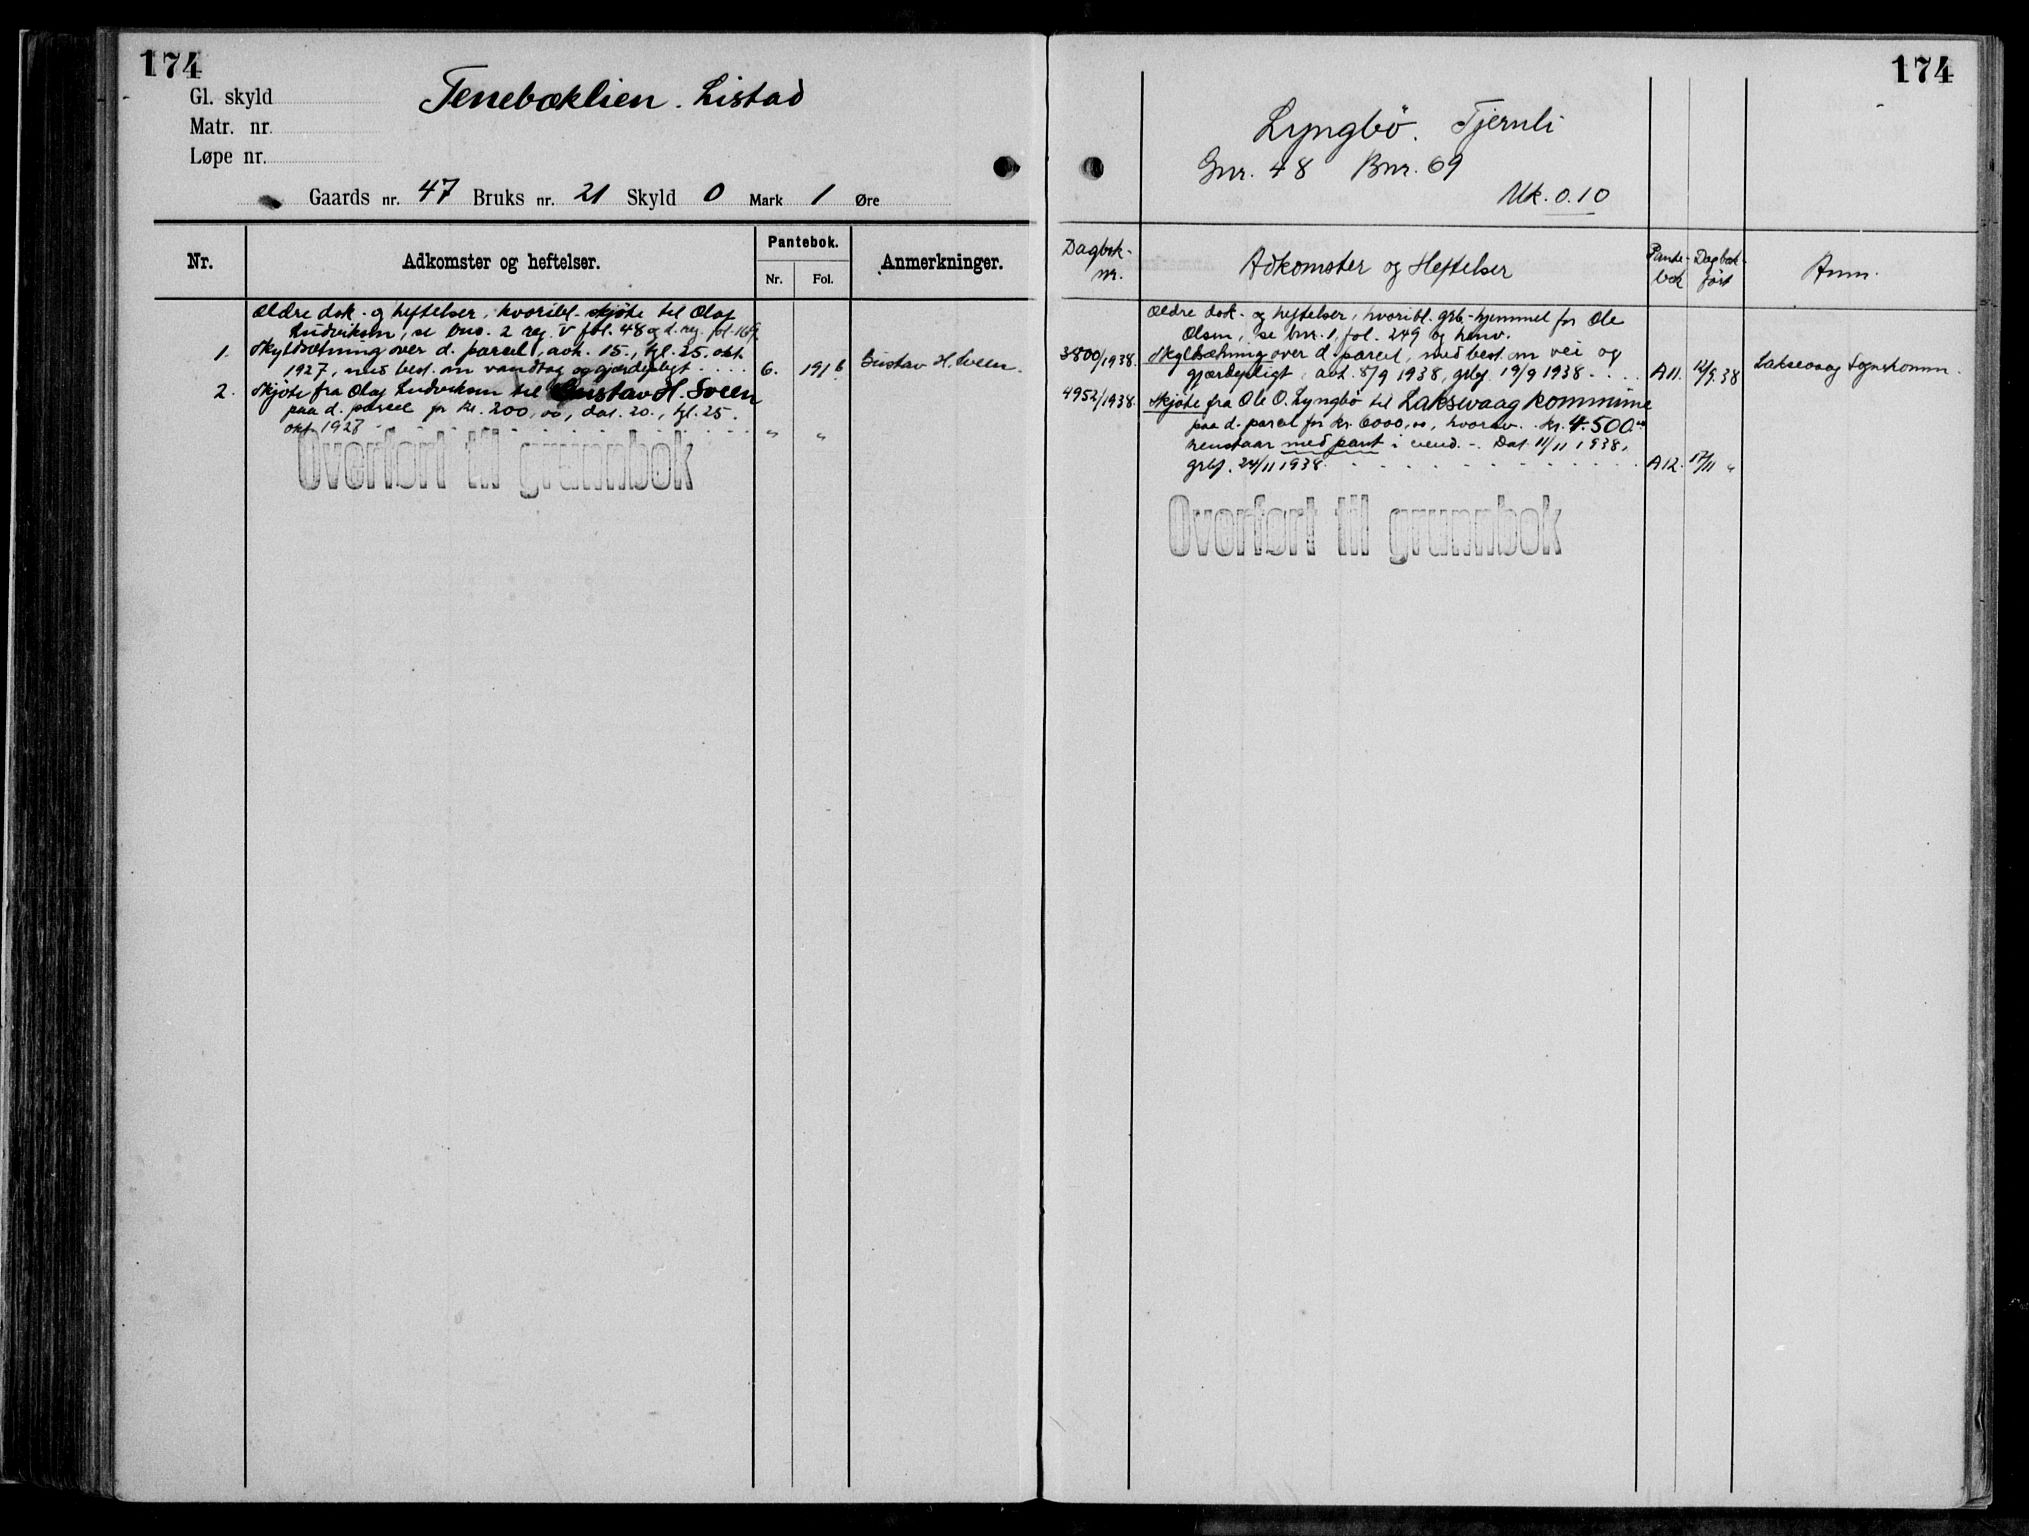 174
Gl. skyld
Matr. nr.
Løpe nr.
Tenebæklien. Listad
Gaards nr. 47 Bruks nr. 21 Skyld 0 Mark 1 Øre
Nr.
Adkomster og heftelser.
Pantebok.
Nr. Fol.
Anmerkninger.
Ældre dok. og heftelser, hvoribl. skjøte til Olaf
Ludviksen, se bno. 2 reg. V fol. 48 og d. reg. fol. 169.
1. Skyldsætning over d. parcel, avh. 15., tgl. 25. okt.
1927, med best. om vandtag og gjærdepligt . . . . 6. 191 b Gustav H. Sveen.
2. Skjøte fra Olaf Ludviksen til Gustav H. Sveen
paa d. parcel for kr. 200,00, dat. 20., tgl. 25.
okt. 1927 . . . . . . . . . . . . " "
Overført til grunnbok
174
Lyngbø. Tjernli
Gnr. 48 Bnr. 69
Mk. 0.10
Dagbok-
nr.
Adkomster og Heftelser
Pante-
bok
Dagbok-
ført
Anm.
Ældre dok. og heftelser, hvoribl. grb.-hjemmel for Ole
Olsen, se bnr. 1, fol. 249 og henv.
3800/1938. Skyldsætning over d. parcel, med best. om vei og
gjærdepligt, avh. 8/9 1938, grbf. 19/9 1938 . . . A11. 12/9.38 Laksevaag Sognekomm.
4952/1938. Skjøte fra Ole O. Lyngbø til Laksevaag kommune
paa d. parcel for kr. 6000,00, hvorav kr. 4.500
henstaar med pant i eiend. - Dat. 11/11 1938,
grbf. 24/11 1938. . . . . . . . . . . A12. 17/11 "
Overført til grunnbok